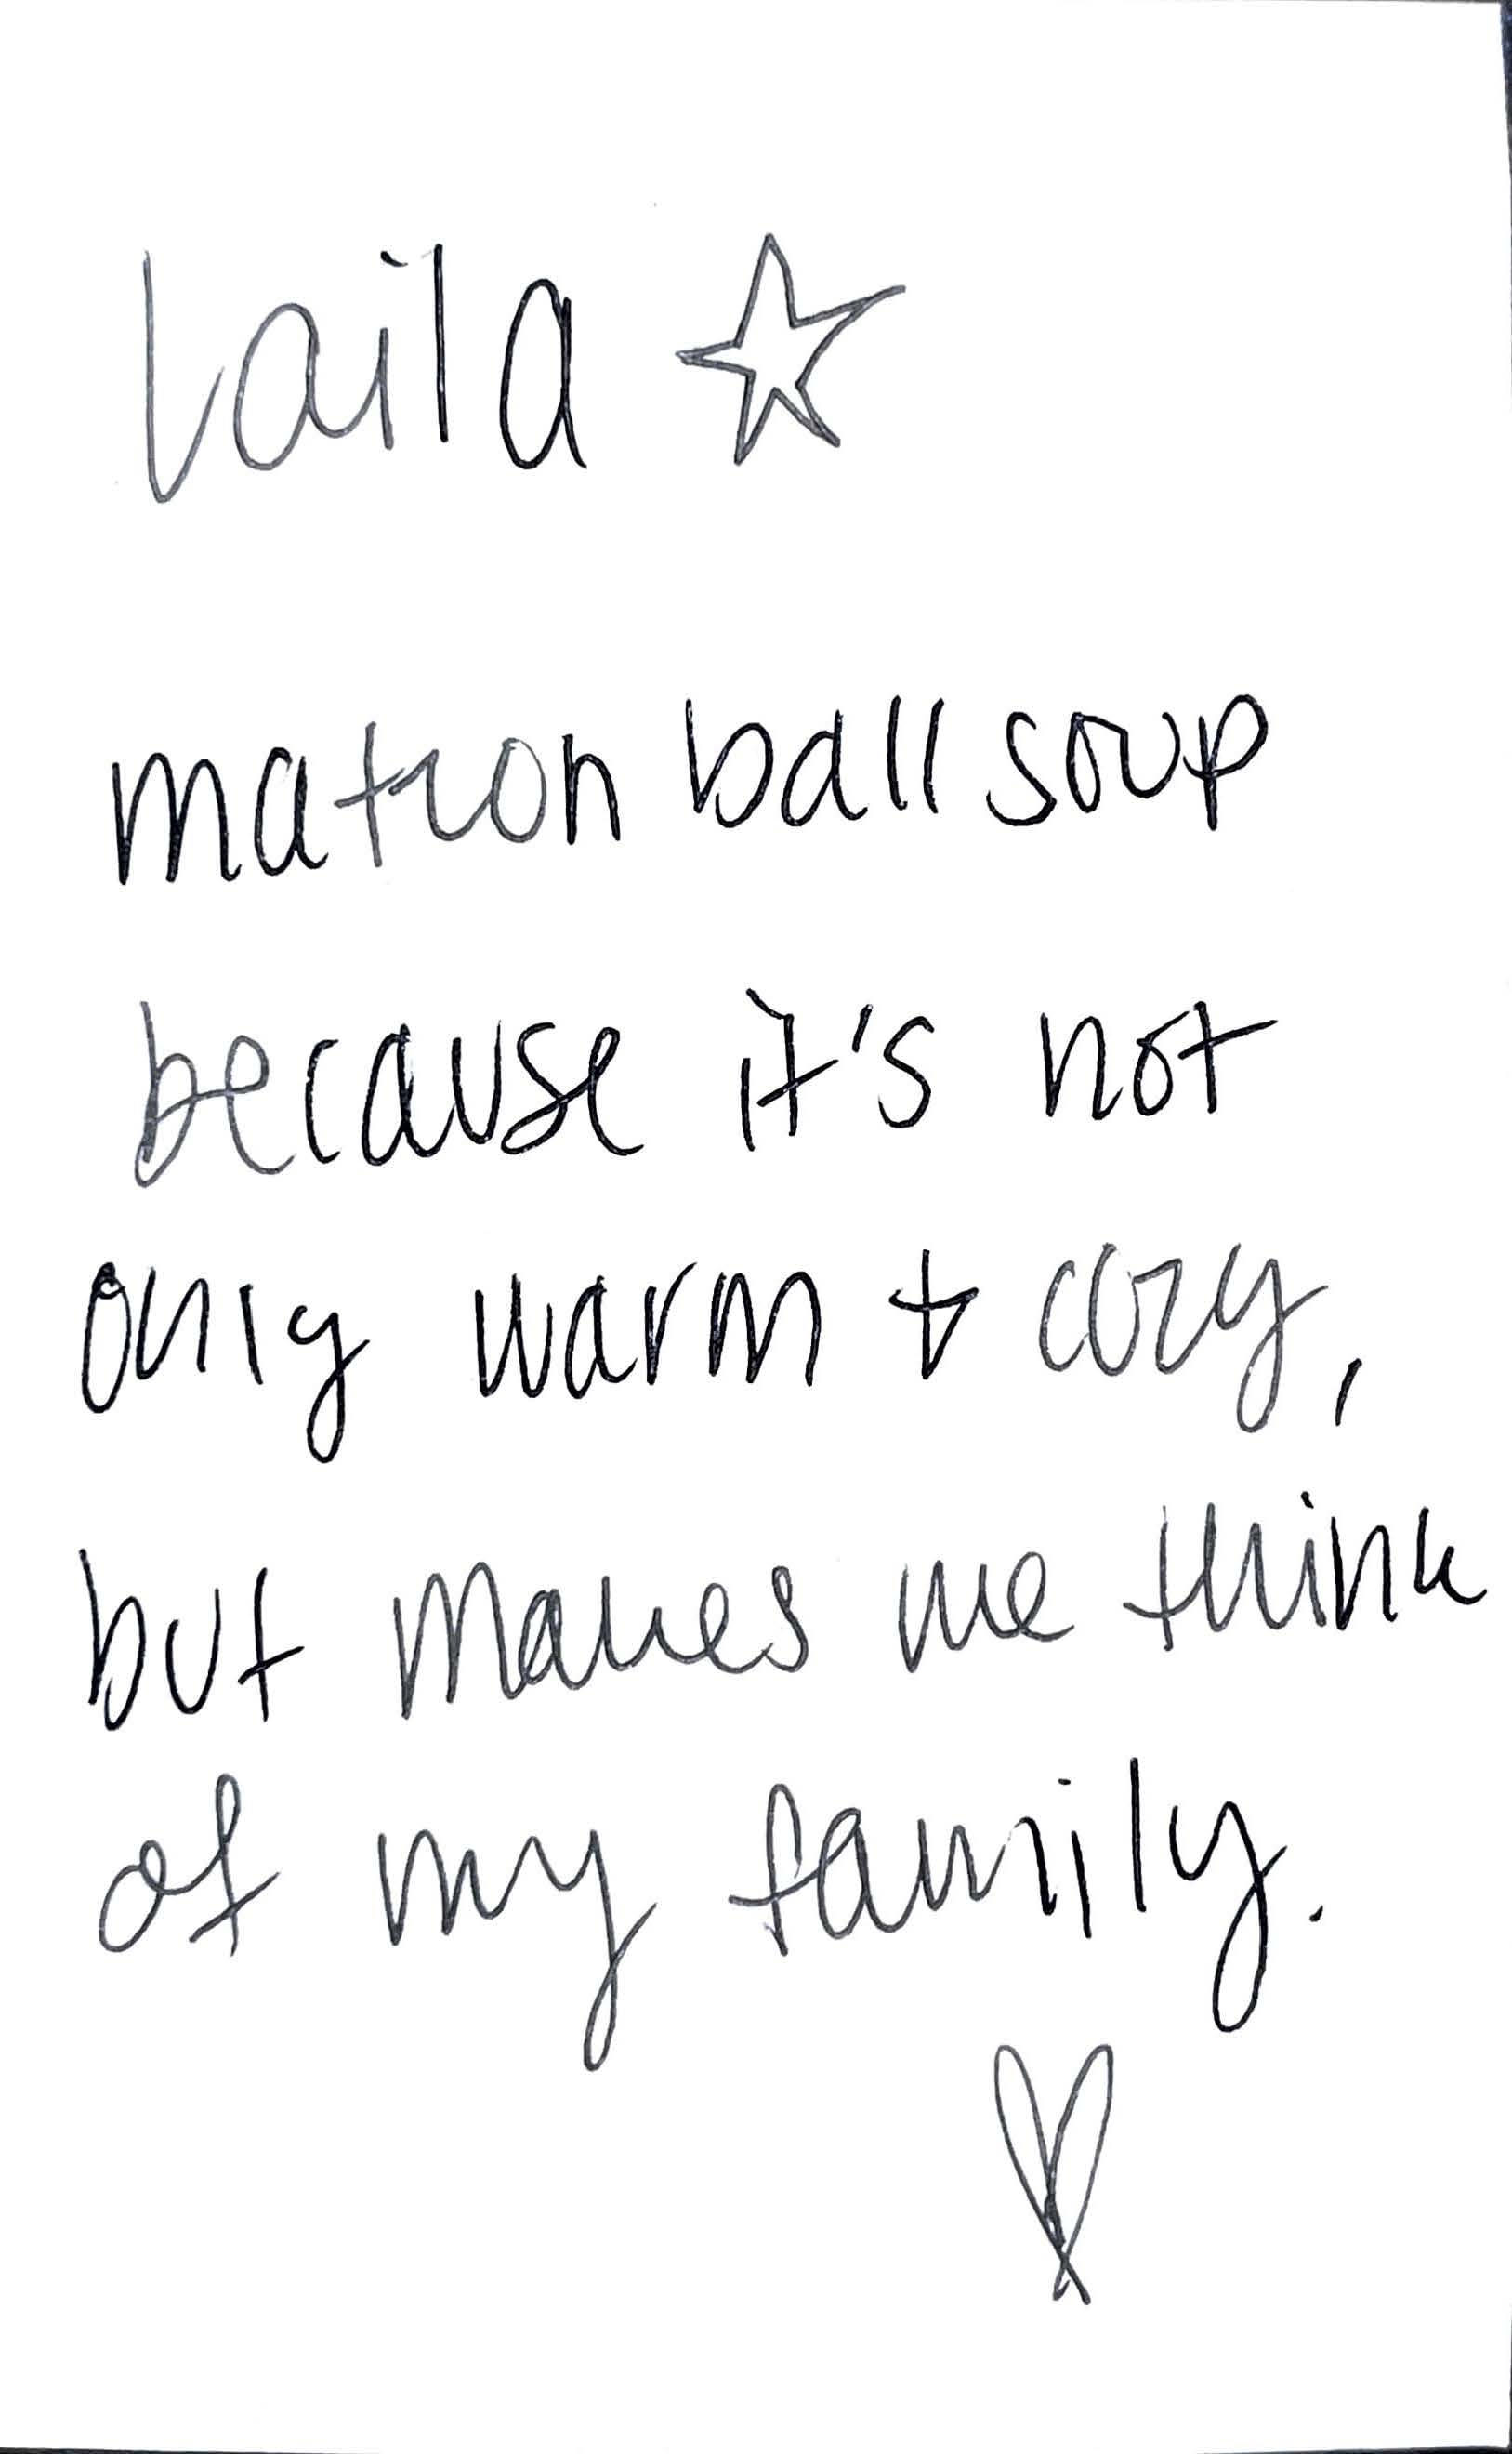 Laila ☆
matzoh ball soup
because it's not
only warm + cozy,
but makes me think
of my family.
♡